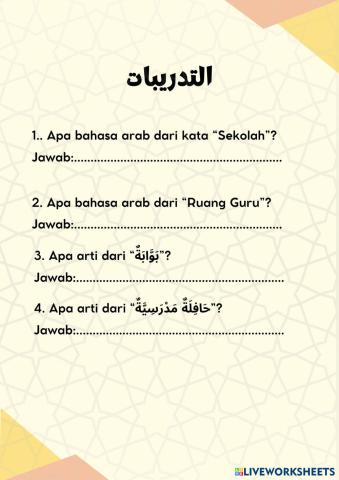 التدريبات
1.. Apa bahasa arab dari kata “Sekolah”?
Jawab:...............................................................
2. Apa bahasa arab dari “Ruang Guru”?
Jawab:...............................................................
3. Apa arti dari “بَوَّابَةٌ”?
Jawab:...............................................................
4. Apa arti dari “حَافِلَةٌ مَدْرَسِيَّةٌ”?
Jawab:...............................................................
LIVEWORKSHEETS